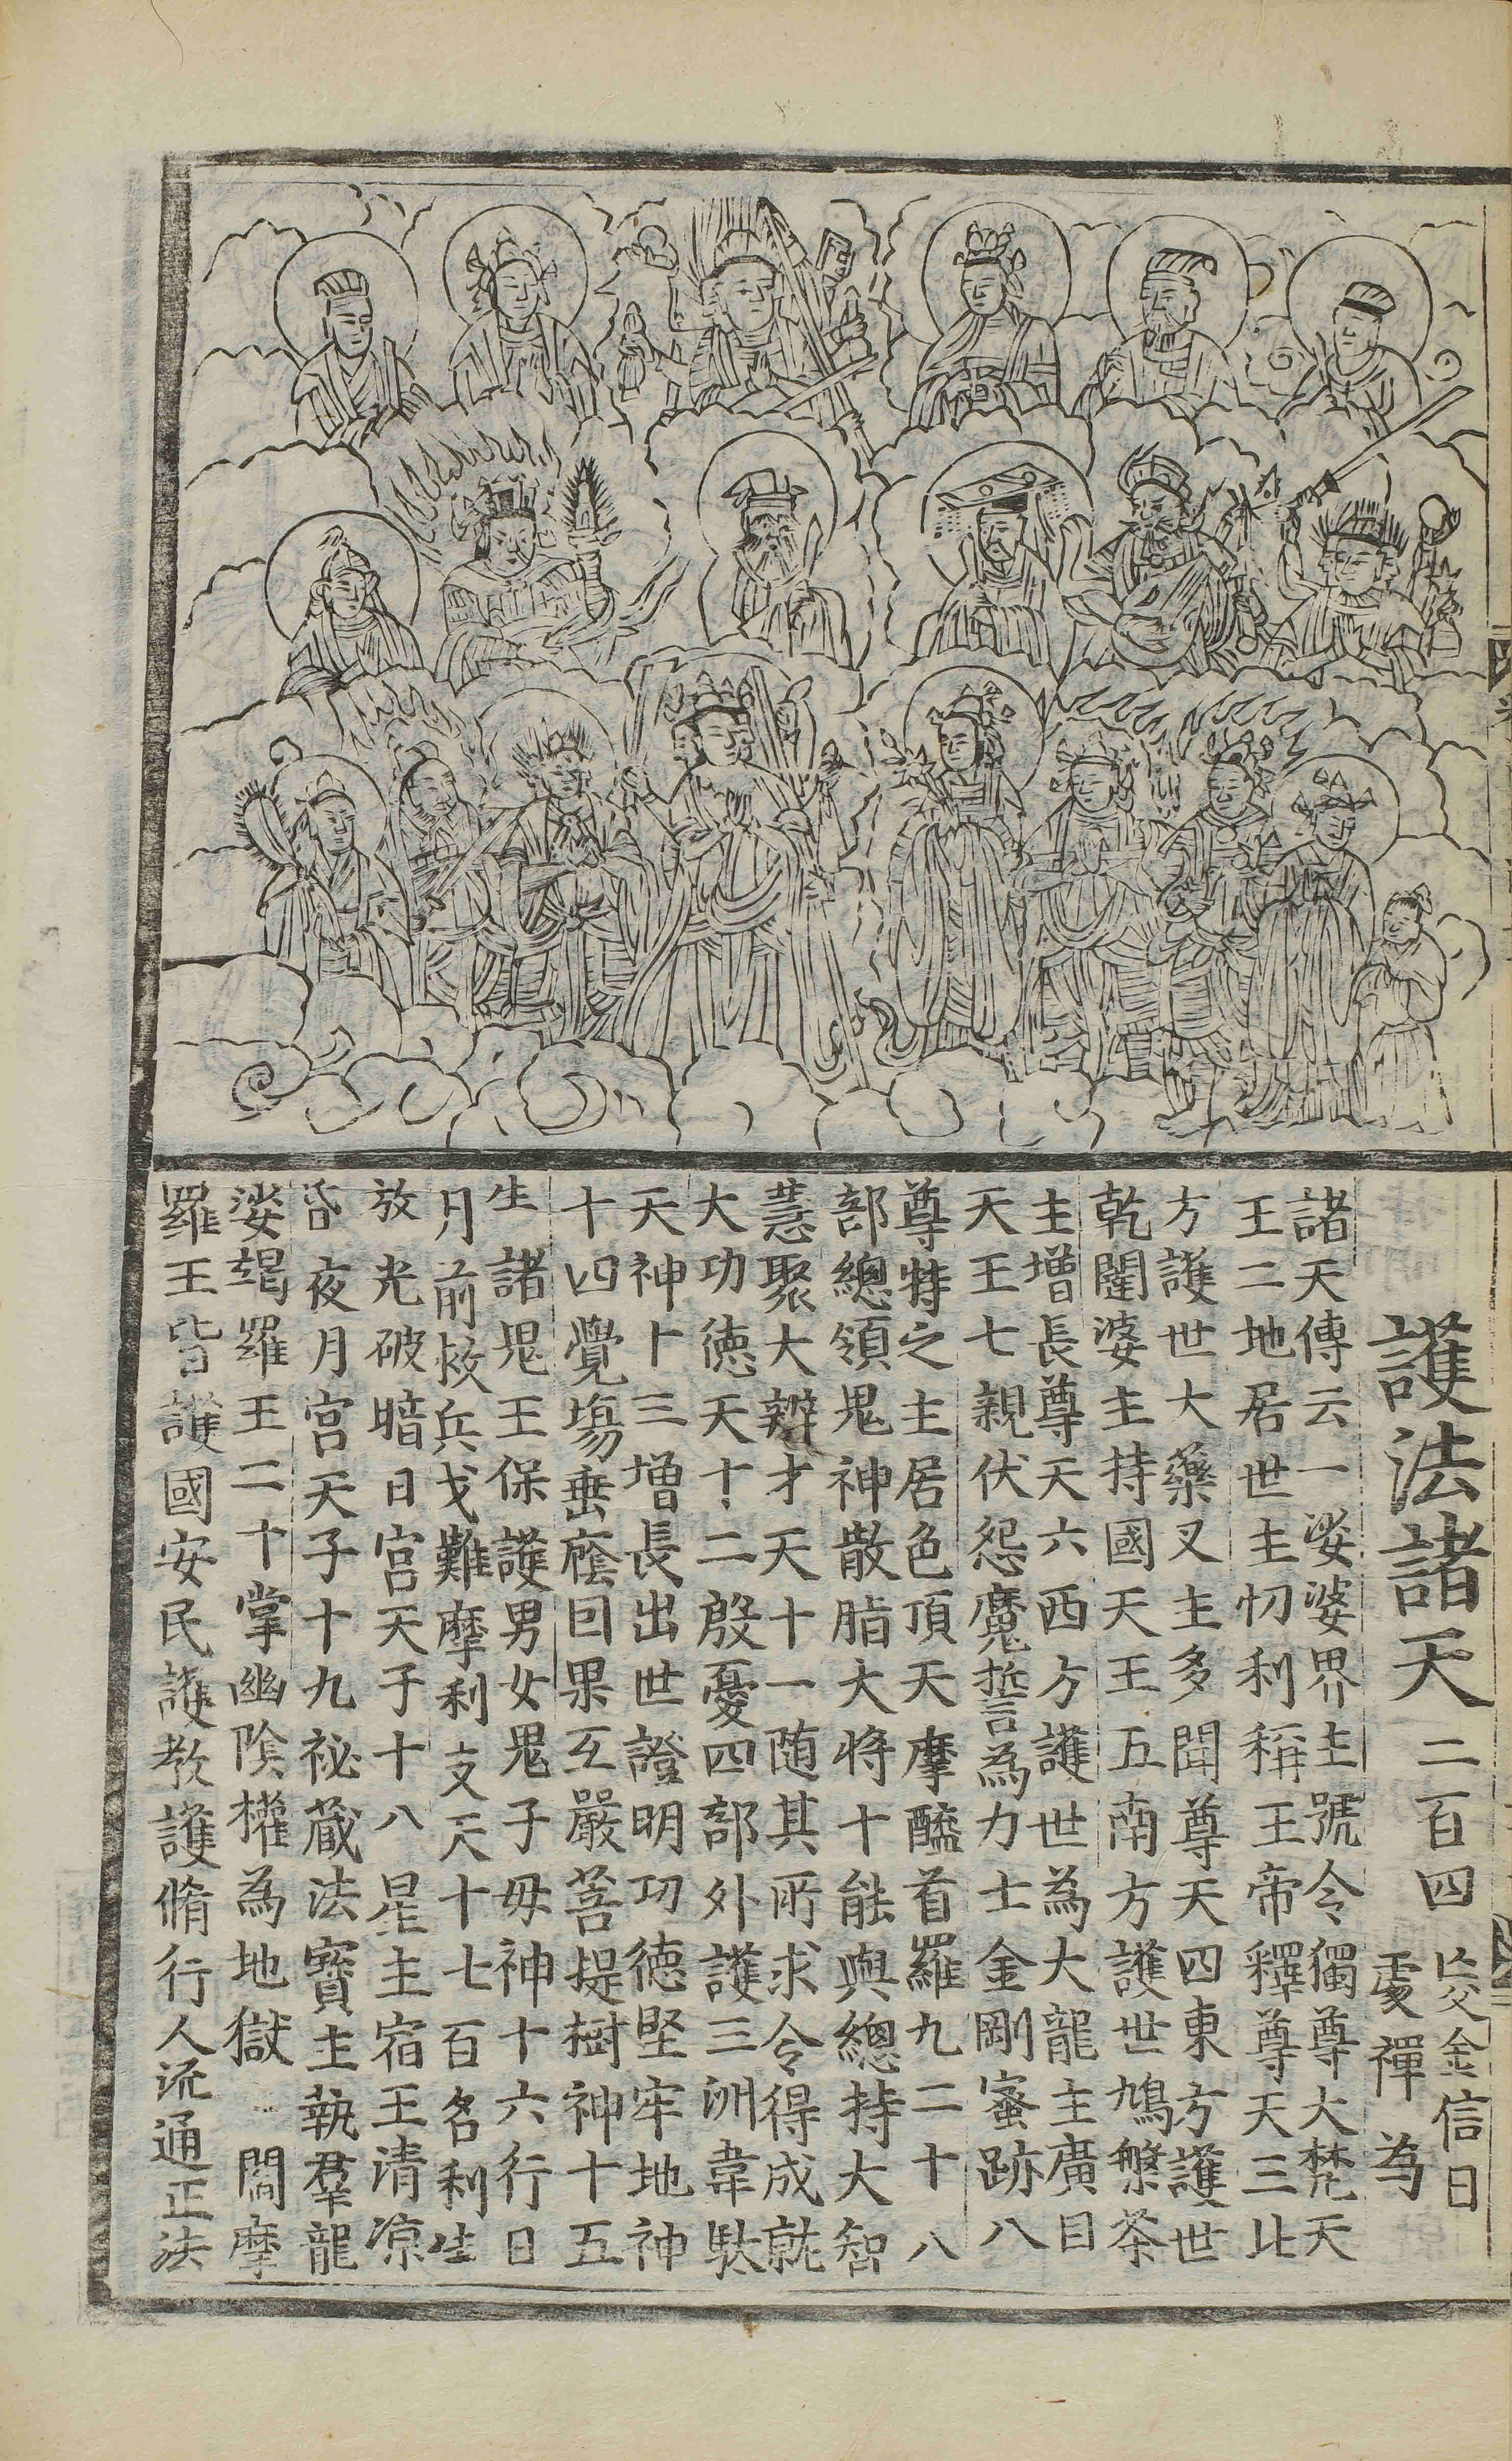 護法諸天二百四
金信日
處禪為
諸天傳云一娑婆界主號令獨尊大梵天
王二地居世主忉利稱王帝釋尊天三北
方護世大藥叉主多聞尊天四東方護世
乾闥婆主持國天王五南方護世鳩槃茶
主增長尊天六西方護世為大龍主廣目
天王七親伏怨魔誓為力士金剛蜜跡八
尊特之主居色頂天摩醯首羅九二十八
部總領鬼神散脂大將十能與總持大智
慧聚大辯才天十一隨其所求令得成就
大功德天十二殷憂四部外護三洲韋馱
天神十三增長出世證明功德堅牢地神
十四覺場垂廕因果互嚴菩提樹神十五
生諸鬼王保護男女鬼子母神十六行日
月前救兵戈難摩利支天十七百名利生
放光破暗日宮天子十八星主宿王清凉
昏夜月宮天子十九祕藏法寶主執羣龍
娑竭羅王二十掌幽陰權為地獄閻摩
羅王皆護國安民護教護脩行人流通正法